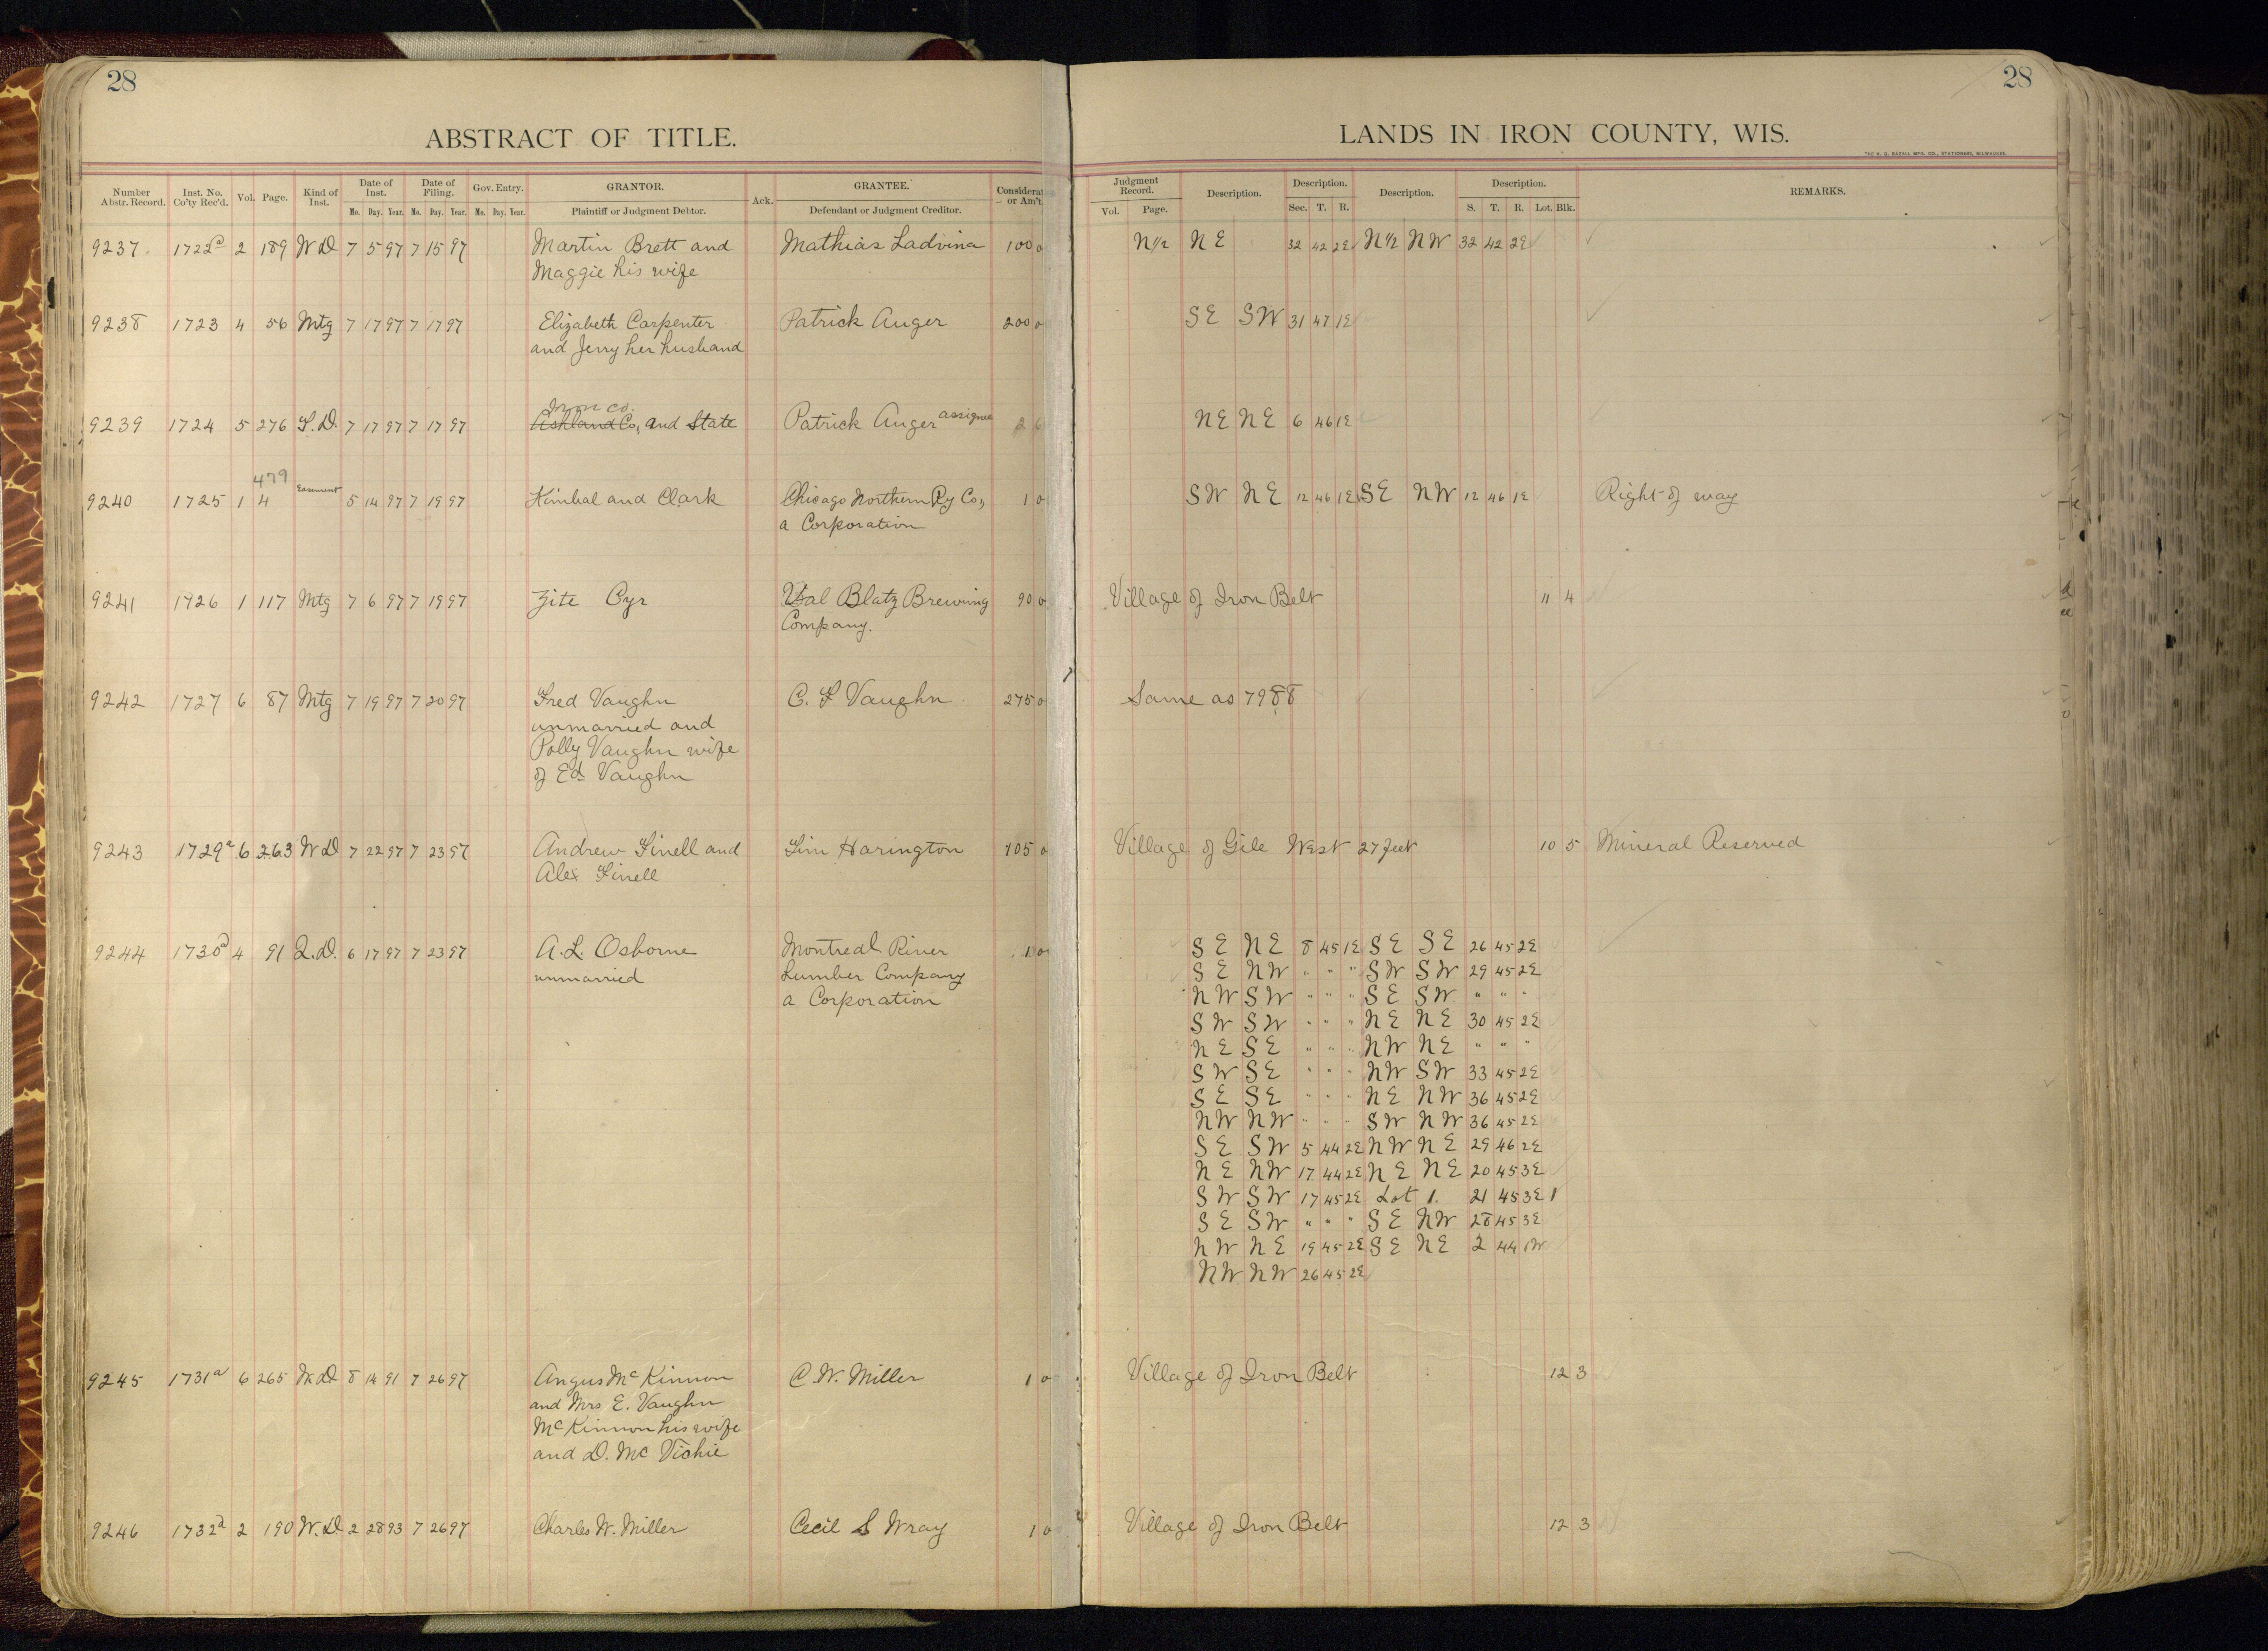 28
ABSTRACT OF TITLE.
Number Abstr. Record. Inst. No. Co'ty Rec'd. Vol. Page. Kind of Inst. Date of Inst. Date of Filing. Gov. Entry. GRANTOR. Ack. GRANTEE. Considerat or Am't
Mo. Day. Year. Mo. Day. Year. Mo. Day. Year. Plaintiff or Judgment Debtor. Defendant or Judgment Creditor.
9237. 1722a 2 189 W D 7 5 97 7 15 97 Martin Brett and Mathias Ladvina 100 0
Maggie his wife
9238 1723 4 56 Mtg 7 17 97 7 17 97 Elizabeth Carpenter Patrick Auger 200 0
and Jerry her husband
Iron Co.
9239 1724 5 276 T.D. 7 17 97 7 17 97 Ashland Co, and State Patrick Auger assignee 2 6
479
9240 1725 1 4 Easement 5 14 97 7 19 97 Kimbal and Clark Chicago Northern Ry Co, 1 0
a Corporation
9241 1726 1 117 Mtg 7 6 97 7 19 97 Zite Cyr Val Blatz Brewing 90 0
Company.
9242 1727 6 87 Mtg 7 19 97 7 20 97 Fred Vaughn C. F Vaughn 275 0
unmarried and
Polly Vaughn wife
of Ed. Vaughn
9243 1729a 6 263 W D 7 22 97 7 23 97 Andrew Finell and Tim Harington 105 0
Alex Finell
9244 1730a 4 91 Q.D. 6 17 97 7 23 97 A. L. Osborne Montreal River 1 0
unmarried Lumber Company
a Corporation
9245 1731a 6 265 W.D. 8 14 91 7 26 97 Angus McKinnon C. W. Miller 1 0
and Mrs E. Vaughn
McKinnon his wife
and D. Mc Vichie
9246 1732a 2 190 W.D. 2 28 93 7 26 97 Charles W. Miller Cecil S Wray 1 0
28
LANDS IN IRON COUNTY, WIS.
Judgment Record. Description. Description. Description. Description. REMARKS.
Vol. Page. Sec. T. R. S. T. R. Lot. Blk.
N1/2 N E 32 42 2E N1/2 N W 32 42 2E
S E S W 31 47 1E
N E N E 6 46 1E
S W N E 12 46 1E S E N W 12 46 1E Right of way
Village of Iron Belt 11 4
Same as 7988
Village of Gile West 27 feet 10 5 Mineral Reserved
S E N E 8 45 1E S E S E 26 45 2E
S E N W " " " S W S W 29 45 2E
N W S W " " " S E S W " " "
S W S W " " " N E N E 30 45 2E
N E S E " " " N W N E " " "
S W S E " " " N W S W 33 45 2E
S E S E " " " N E N W 36 45 2E
N W N W " " " S W N W 36 45 2E
S E S W 5 44 2E N W N E 29 46 2E
N E N W 17 44 2E N E N E 20 45 3E
S W S W 17 45 2E Lot 1. 21 45 3E 1
S E S W " " " S E N W 28 45 3E
N W N E 19 45 2E S E N E 2 44 1W
N W N W 26 45 2E
Village of Iron Belt 12 3
Village of Iron Belt 12 3